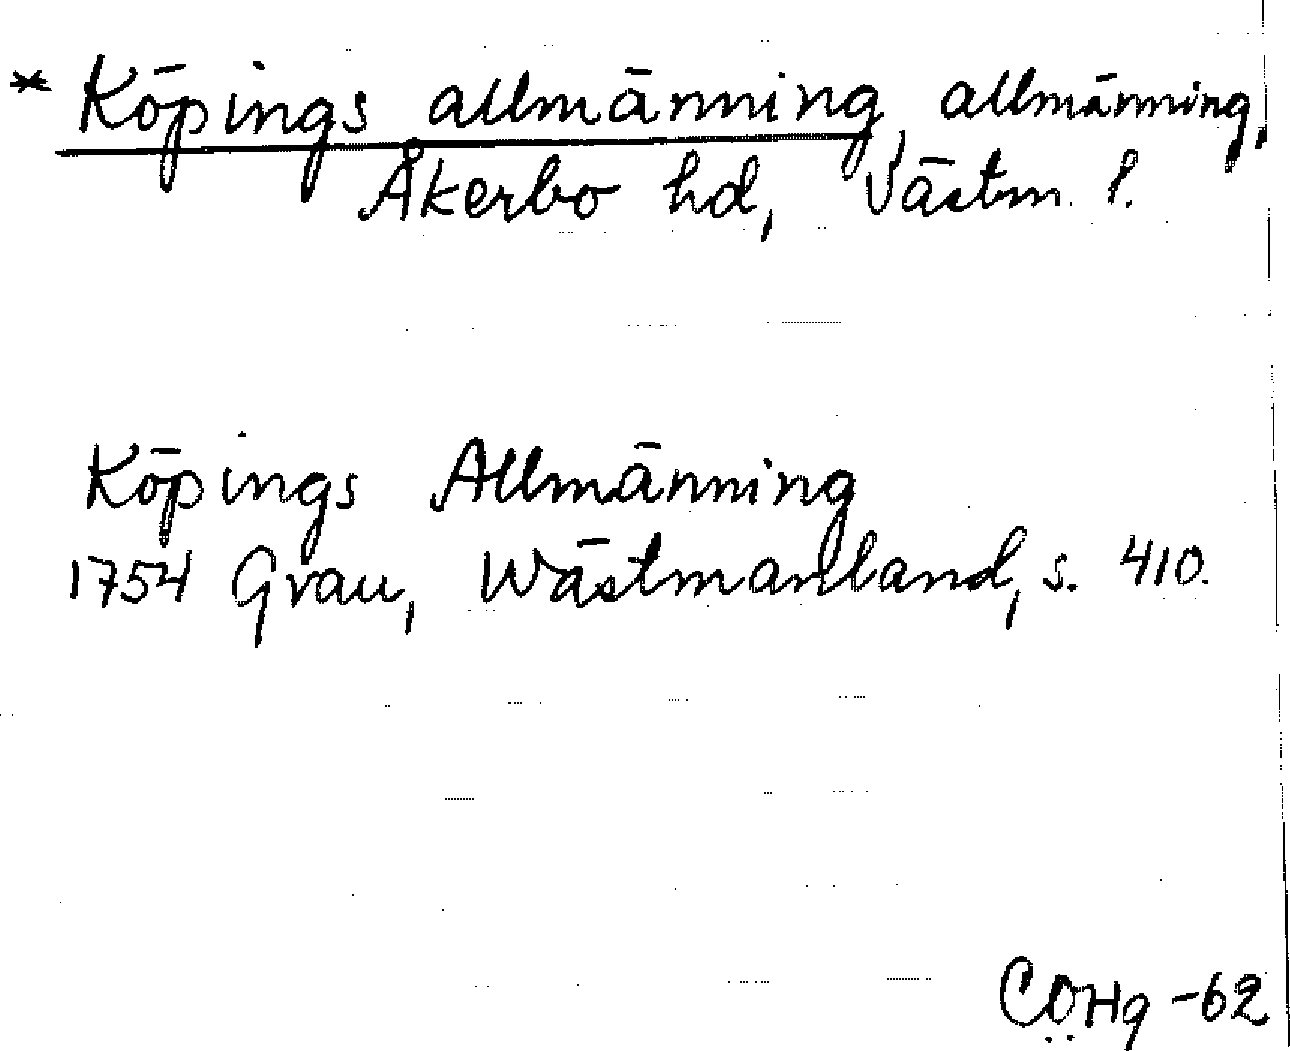 * Köpings allmänning, allmänning,
Åkerbo hd, Västm. l.
Köpings Allmänning
1754 Grau, Wästmanland, s. 410.
CÖHg -62